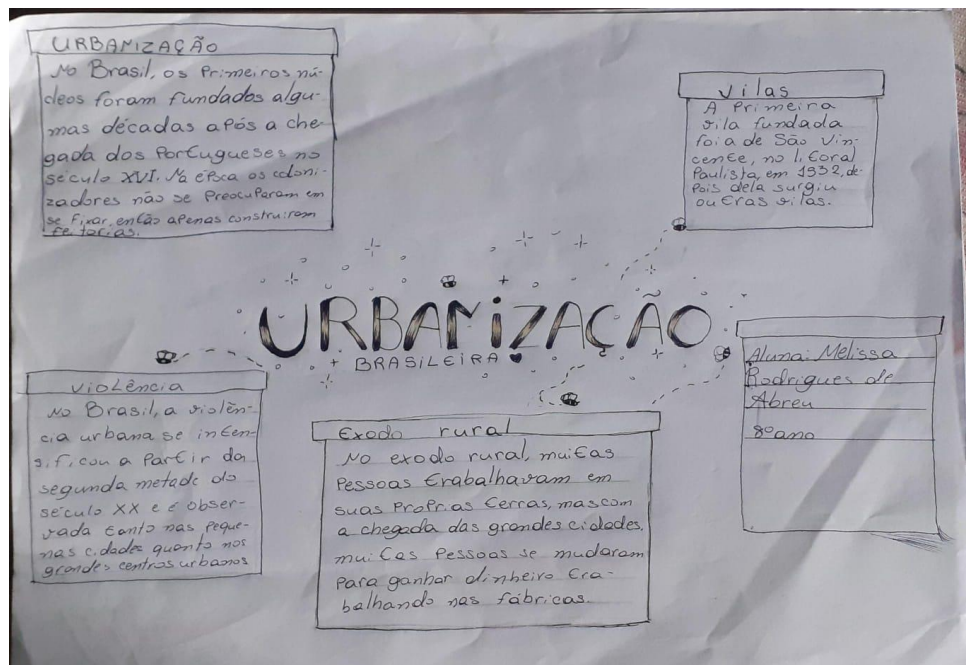 URBANIZAÇÃO
No Brasil, os Primeiros nú-
cleos foram fundados algu-
mas décadas após a che-
gada dos Portugueses no
século XVI. Na época os coloni-
zadores não se preocuparam em
se fixar, então apenas construiram
feitorias.
Vilas
A Primeira
vila fundada
foi a de São Vin-
cente, no litoral
Paulista, em 1932, de-
pois dela surgiu
outras vilas.
URBANIZAÇÃO
BRASILEIRA
Violência
No Brasil, a violên-
cia urbana se inten-
sificou a partir da
segunda metade do
século XX e é obser-
vada tanto nas peque-
nas cidades quanto nos
grandes centros urbanos
Exodo rural
No exodo rural, muitas
Pessoas trabalhavam em
suas proprias terras, mas com
a chegada das grandes cidades,
muitas Pessoas se mudaram
Para ganhar dinheiro tra-
balhando nas fábricas.
Aluna: Melissa
Rodrigues de
Abreu
8º ano